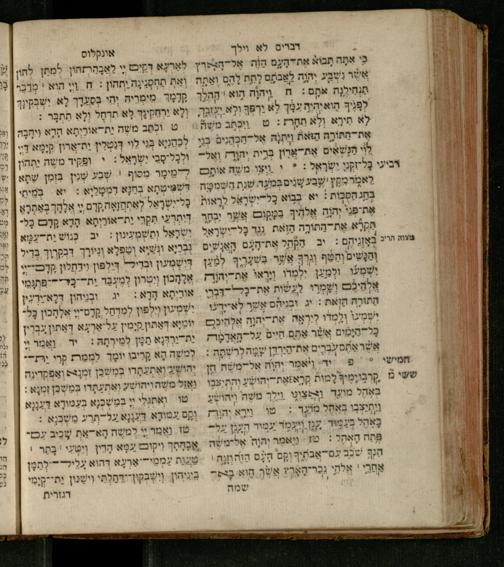 דברים לא וילך
אונקלוס
כי אתה תבוא את־העם הזה אל־הארץ
אשר נשבע יהוה לאבתם לתת להם ואתה
תנחילנה אתם : ח ויהוה הוא ההלך
לפניך הוא יהיה עמך לא ירפך ולא יעזבך
לא תירא ולא תחת : ט ויכתב משה
את־התורה הזאת ויתנה אל־הכהנים בני
לוי הנשאים את־ארון ברית יהוה ואל־
רביעי
כל־זקני ישראל : י ויצו משה אותם
לאמר מקץ שבע שנים במעד שנת השמטה
בחג הסכות : יא בבוא כל־ישראל לראות
את־פני יהוה אלהיך במקום אשר יבחר
תקרא את־התורה הזאת נגד כל־ישראל
מצוה תריב
באזניהם : יב הקהל את־העם האנשים
והנשים והטף וגרך אשר בשעריך למען
ישמעו ולמען ילמדו ויראו את־יהוה
אלהיכם ושמרו לעשות את־כל־דברי
התורה הזאת : יג ובניהם אשר לא־ידעו
ישמעו ולמדו ליראה את־יהוה אלהיכם
כל־הימים אשר אתם חיים על־האדמה
אשר אתם עברים את־הירדן שמה לרשתה :
חמישי
פ יד ויאמר יהוה אל־משה הן
ששי
קרבו ימיך למות קרא את־יהושע והתיצבו
באהל מועד ואצונו וילך משה ויהושע
ויתיצבו באהל מועד : טו וירא יהוה
באהל בעמוד ענן ויעמד עמוד הענן על־
פתח האהל : טז ויאמר יהוה אל־משה
הנך שכב עם־אבתיך וקם העם הזה וזנה
אחרי אלהי נכר־הארץ אשר הוא בא־
שמה
לארעא דקים יי לאבהתהון למתן להון
ואת תחסנינה יתהון : ח ויי הוא מדבר
קדמך מימריה יהי בסעדך לא ישבקינך
ולא ירחקינך לא תדחל ולא תתבר :
ט וכתב משה ית־אוריתא הדא ויהבה
לכהניא בני לוי דנטלין ית־ארון קימא דיי
ולכל־סבי ישראל : י ופקיד משה יתהון
למימר מסוף שבע שנין בזמן שתא
דשמיטתא בחגא דמטליא : יא במיתי
כל־ישראל לאתחזאה קדם יי אלהך באתרא
דיתרעי תקרי ית־אוריתא הדא קדם כל־
ישראל ותשמעינון : יב כנוש ית־עמא
גבריא ונשיא וטפלא וגיורך דבקרוך בדיל
דישמעון ובדיל דילפון וידחלון קדם יי
אלהכון ויטרון למעבד ית־כל־פתגמי
אוריתא הדא : יג ובניהון דלא־ידעין
ישמעון וילפון למדחל קדם־יי אלהכון כל־
יומיא דאתון קימין על־ארעא דאתון עברין
ית־ירדנא תמן למירתה : יד ואמר יי
למשה הא קריבו יומך לממת קרי ית־
יהושע ואתעתדו במשכן זמנא ואפקדיניה
ואזל משה ויהושע ואתעתדו במשכן זמנא :
טו ואתגלי יי במשכנא בעמודא דעננא
וקם עמודא דעננא על־תרע משכנא :
טז ואמר יי למשה הא־את שכיב עם־
אבהתך ויקום עמא הדין ויטעי בתר
טעות עממי־ארעא דהוא עליל לתמן
ביניהון וישבקון דחלתי וישנון ית־קימי
דגזרית